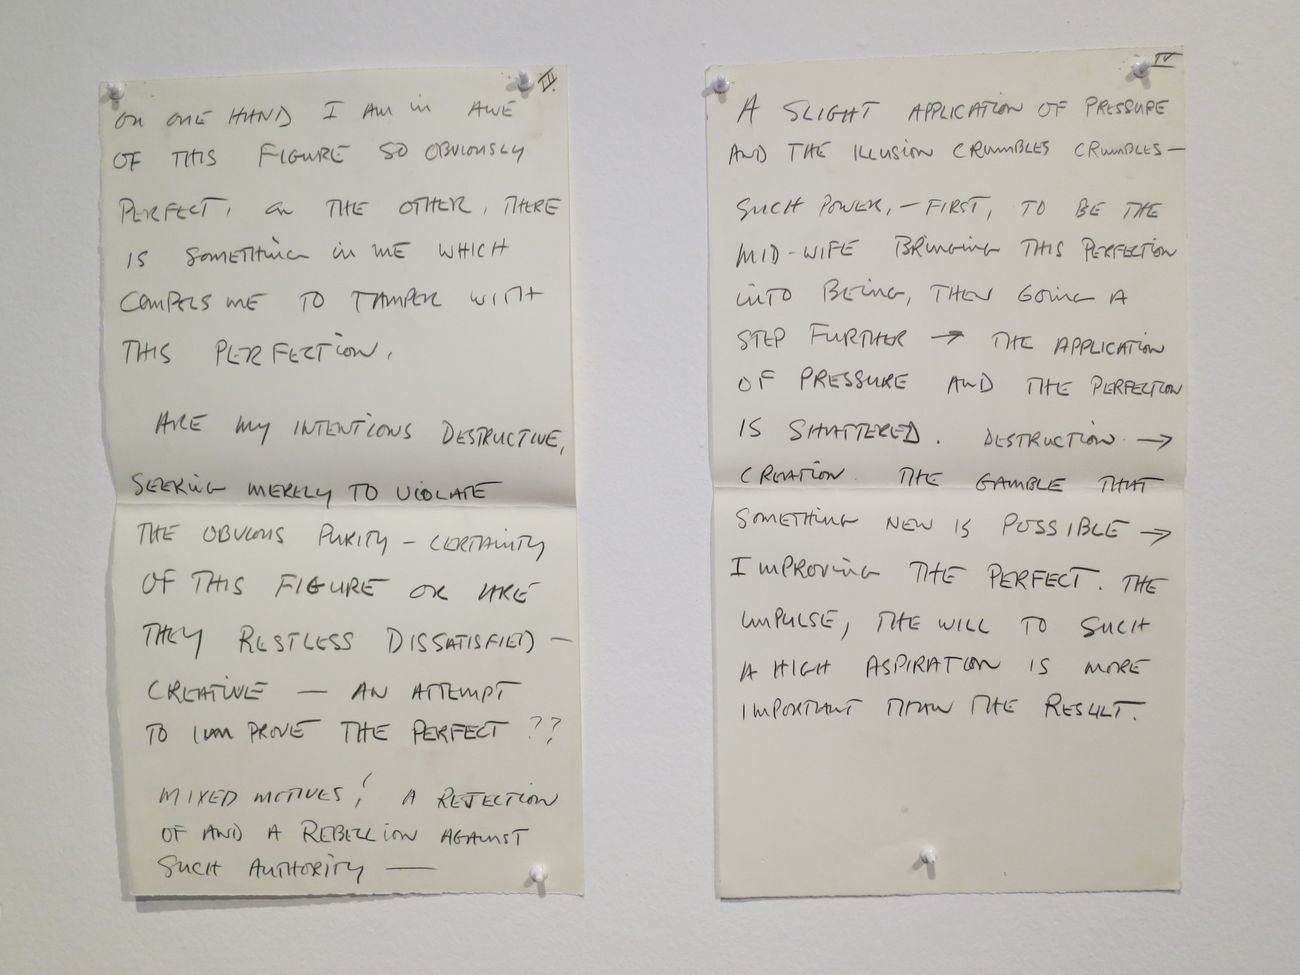 III.
ON ONE HAND I AM IN AWE
OF THIS FIGURE SO OBVIOUSLY
PERFECT, ON THE OTHER, THERE
IS SOMETHING IN ME WHICH
COMPELS ME TO TAMPER WITH
THIS PERFECTION.
ARE MY INTENTIONS DESTRUCTIVE,
SEEKING MERELY TO VIOLATE
THE OBVIOUS PURITY – CERTAINTY
OF THIS FIGURE OR ARE
THEY RESTLESS DISSATISFIED —
CREATIVE — AN ATTEMPT
TO IMPROVE THE PERFECT ??
MIXED MOTIVES! A REJECTION
OF AND A REBELLION AGAINST
SUCH AUTHORITY —
IV
A SLIGHT APPLICATION OF PRESSURE
AND THE ILLUSION CRUMBLES CRUMBLES —
SUCH POWER, – FIRST, TO BE THE
MID-WIFE BRINGING THIS PERFECTION
INTO BEING, THEN GOING A
STEP FURTHER → THE APPLICATION
OF PRESSURE AND THE PERFECTION
IS SHATTERED. DESTRUCTION →
CREATION. THE GAMBLE THAT
SOMETHING NEW IS POSSIBLE →
IMPROVING THE PERFECT. THE
IMPULSE, THE WILL TO SUCH
A HIGH ASPIRATION IS MORE
IMPORTANT THAN THE RESULT.